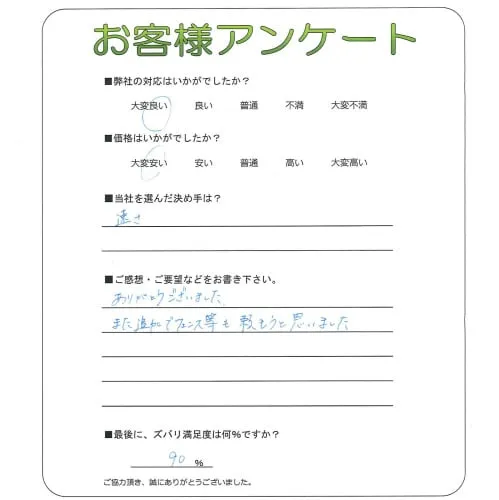 お客様アンケート
■弊社の対応はいかがでしたか？
大変良い 良い 普通 不満 大変不満
■価格はいかがでしたか？
大変安い 安い 普通 高い 大変高い
■当社を選んだ決め手は？
速さ
■ご感想・ご要望などをお書き下さい。
ありがとうございました
また追加でフェンス等も 頼もうと思いました
■最後に、ズバリ満足度は何%ですか？
90 %
ご協力頂き、誠にありがとうございました。